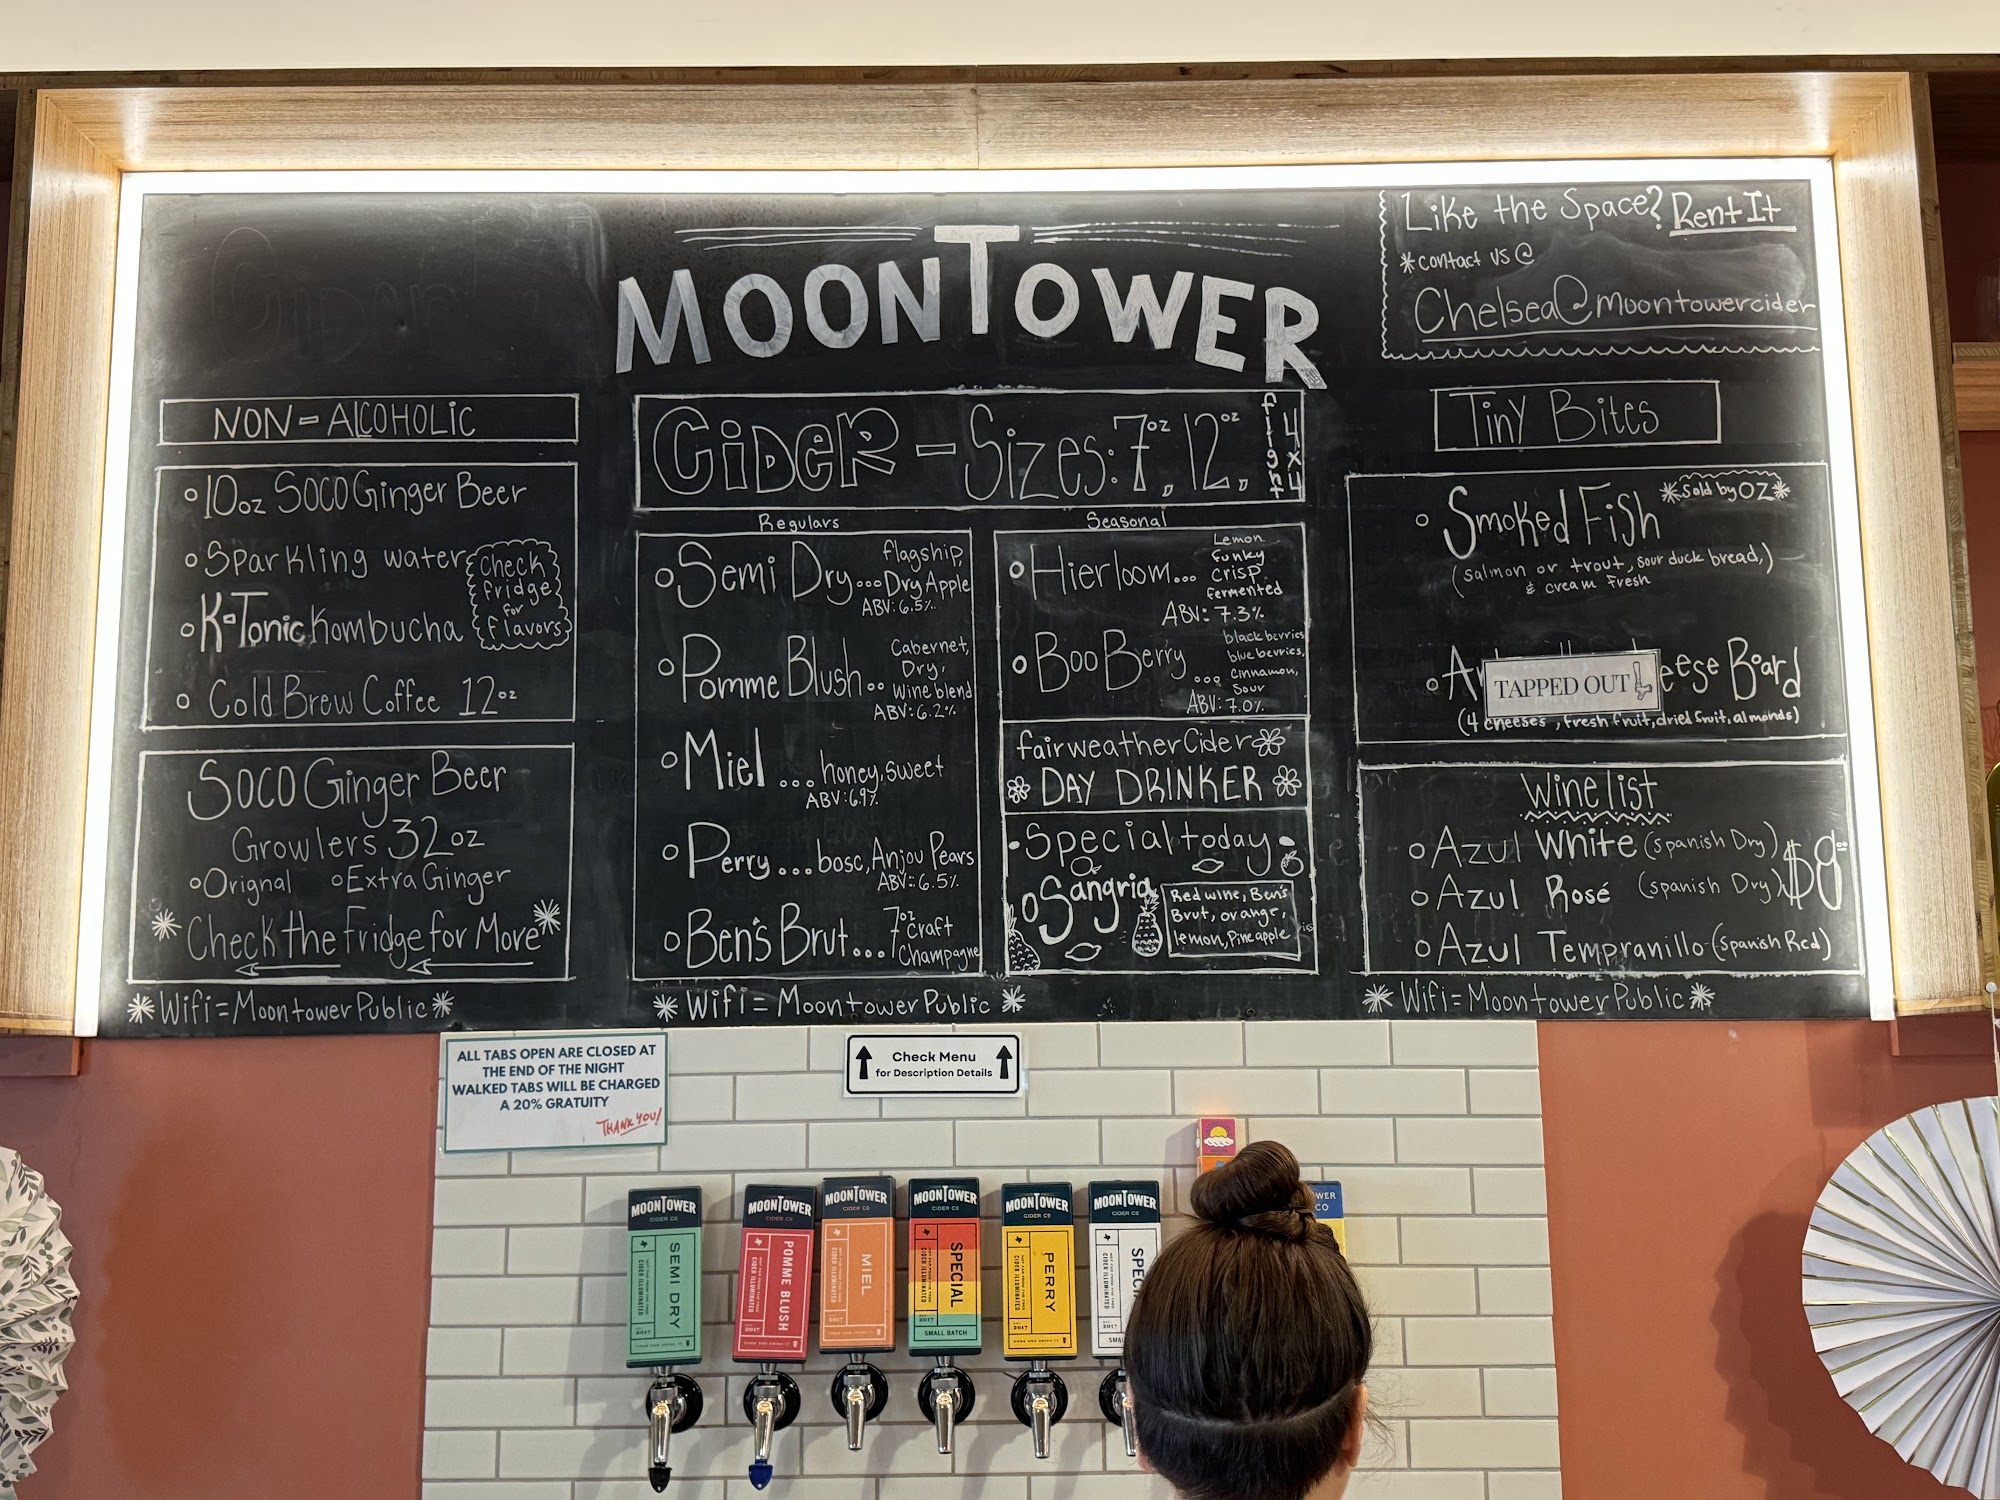 MOONTOWER
Like the Space? Rent It
*contact us @
Chelsea@moontowercider
NON-ALCOHOLIC
10oz SOCO Ginger Beer
Sparkling water
K-Tonic Kombucha
Check
fridge
for
flavors
Cold Brew Coffee 12oz
SOCO Ginger Beer
Growlers 32oz
Orignal Extra Ginger
*Check the Fridge for More*
*Wifi = Moontower Public*
CIDER - Sizes: 7oz, 12oz, flight 4x4
Regulars
Semi Dry... flagship,
Dry Apple
ABV: 6.5%
Pomme Blush.. Cabernet,
Dry,
Wine blend
ABV: 6.2%
Miel ... honey, sweet
ABV: 6.9%
Perry... bosc, Anjou Pears
ABV: 6.5%
Ben's Brut... 7oz craft
Champagne
*Wifi = Moontower Public*
Seasonal
Hierloom... Lemon
funky
crisp
fermented
ABV: 7.3%
Boo Berry ... black berries
blue berries,
cinnamon,
sour
ABV: 7.0%
fairweather Cider
DAY DRINKER
Special today
Sangria
Red wine, Ben's
Brut, orange,
lemon, Pineapple
Tiny Bites
Smoked Fish *Sold by OZ*
(salmon or trout, sour duck bread,)
& cream fresh
TAPPED OUT
eese Board
(4 cheeses, fresh fruit, dried fruit, almonds)
Wine list
Azul White (Spanish Dry)
Azul Rosé (Spanish Dry)
Azul Tempranillo (Spanish Red)
*Wifi = Moontower Public*
ALL TABS OPEN ARE CLOSED AT
THE END OF THE NIGHT
WALKED TABS WILL BE CHARGED
A 20% GRATUITY
THANK YOU!
Check Menu
for Description Details
MOONTOWER
CIDER CO
SEMI DRY
CIDER ILLUMINATED
2017
MOONTOWER
CIDER CO
POMME BLUSH
CIDER ILLUMINATED
2017
MOONTOWER
CIDER CO
MIEL
CIDER ILLUMINATED
2017
MOONTOWER
CIDER CO
SPECIAL
CIDER ILLUMINATED
2017
SMALL BATCH
MOONTOWER
CIDER CO
PERRY
CIDER ILLUMINATED
2017
MOONTOWER
CIDER CO
SPEC
CIDER ILLUMINATED
2017
SMA
OWER
CO